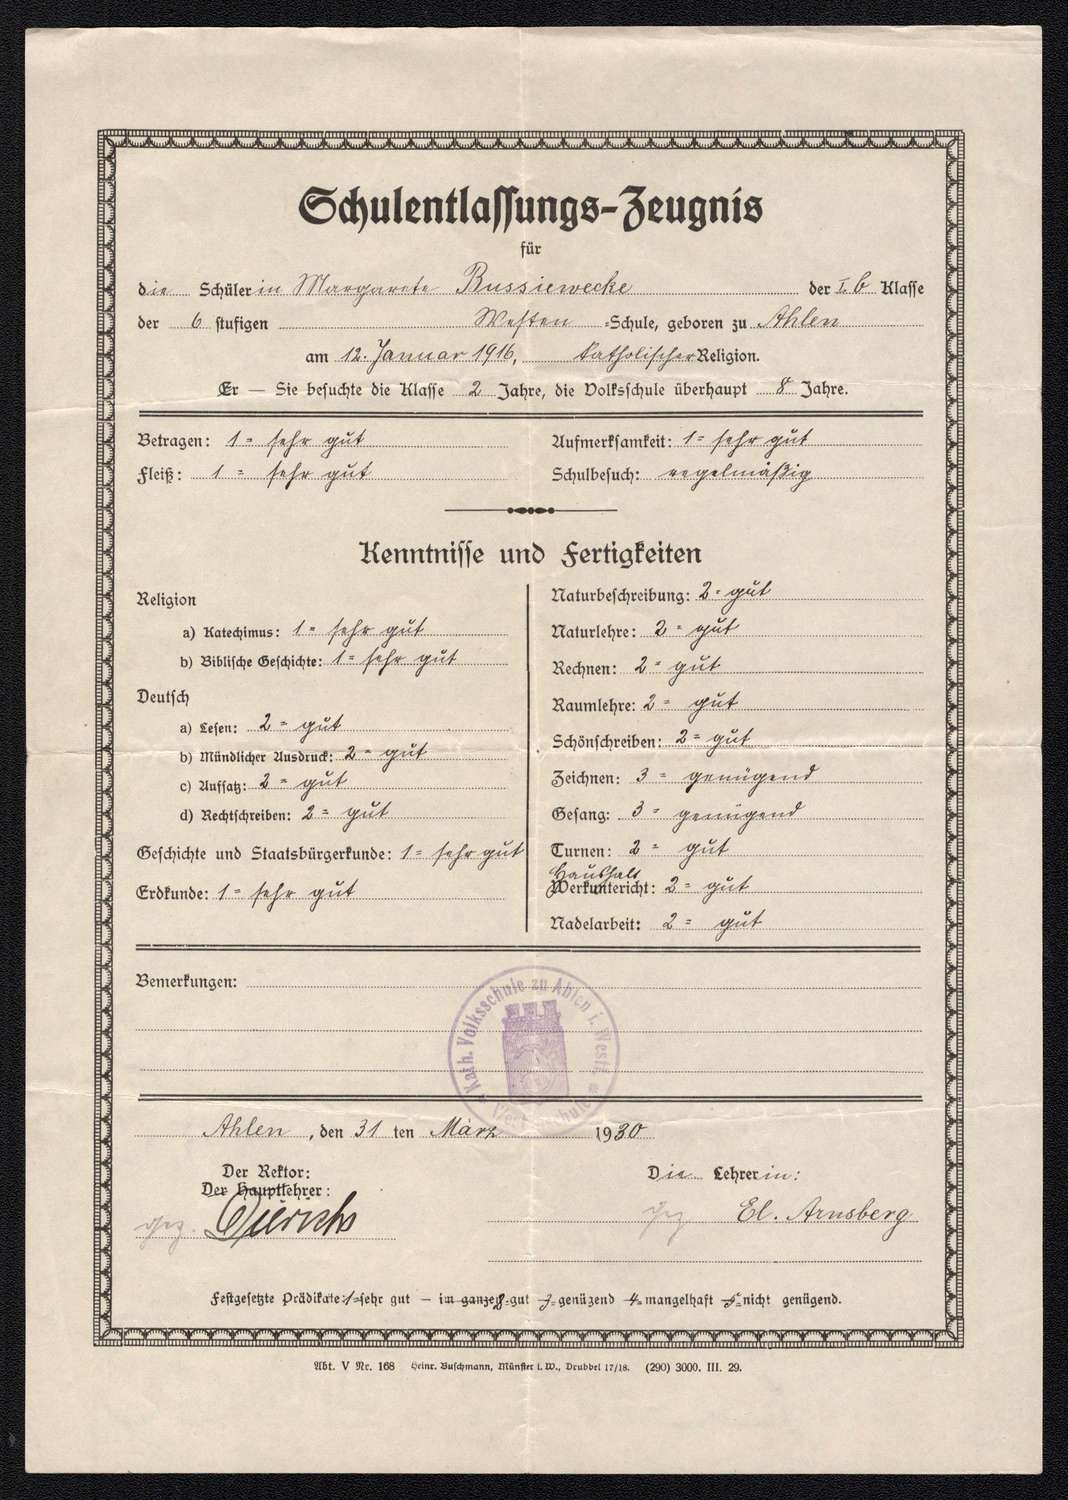 Schulentlassungs-Zeugnis
für
die Schülerin Margarete Bussiewecke der I. b Klasse
der 6 stufigen Westen =Schule, geboren zu Ahlen
am 12. Januar 1916, katholischer Religion.
Er — Sie besuchte die Klasse 2 Jahre, die Volksschule überhaupt 8 Jahre.
Betragen: 1 = sehr gut
Fleiß: 1 = sehr gut
Aufmerksamkeit: 1 = sehr gut
Schulbesuch: regelmäßig
Kenntnisse und Fertigkeiten
Religion
a) Katechimus: 1 = sehr gut
b) Biblische Geschichte: 1 = sehr gut
Deutsch
a) Lesen: 2 = gut
b) Mündlicher Ausdruck: 2 = gut
c) Aufsatz: 2 = gut
d) Rechtschreiben: 2 = gut
Geschichte und Staatsbürgerkunde: 1 = sehr gut
Erdkunde: 1 = sehr gut
Naturbeschreibung: 2 = gut
Naturlehre: 2 = gut
Rechnen: 2 = gut
Raumlehre: 2 = gut
Schönschreiben: 2 = gut
Zeichnen: 3 = genügend
Gesang: 3 = genügend
Turnen: 2 = gut
Haushalt
Werkuntericht: 2 = gut
Nadelarbeit: 2 = gut
Bemerkungen:
Kath. Volksschule zu Ahlen i. Westf.
Ahlen, den 31 ten März 1930
Der Rektor:
Der Hauptlehrer:
gez.
Die Lehrerin:
gez. El. Arnsberg
Festgesetzte Prädikate: 1=sehr gut — im ganzen 2=gut 3=genügend 4=mangelhaft 5=nicht genügend.
Abt. V Nr. 168 Heinr. Buschmann, Münster i. W., Drubbel 17/18. (290) 3000. III. 29.